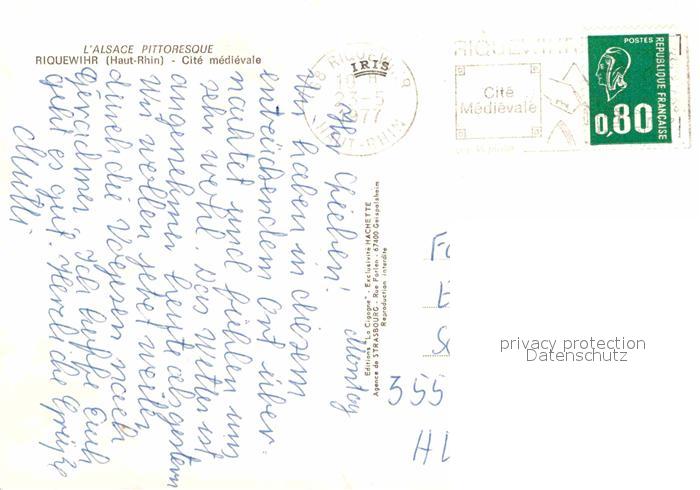 L'ALSACE PITTORESQUE
RIQUEWIHR (Haut-Rhin) - Cité médiévale
IRIS
68 RIQUEWIHR
1977
HAUT-RHIN
RIQUEWIHR
Cité
Médiévale
POSTES
REPUBLIQUE FRANÇAISE
0,80
Ihr Lieben! Montag
Wir haben in diesem
entzückendem Ort über-
nachtet und fühlen uns
sehr wohl. Das Wetter ist
angenehmer heute als gestern
Wir wollen jetzt weiter
durch die Vogesen nach
Gérardmer. Ich hoffe Euch
geht es gut. Herzliche Grüße
Mutti
Editions "La Cigogne" - Exclusivité HACHETTE
Agence de STRASBOURG - Rue Forlen - 67400 Geispolsheim
Reproduction interdite
355
privacy protection
Datenschutz